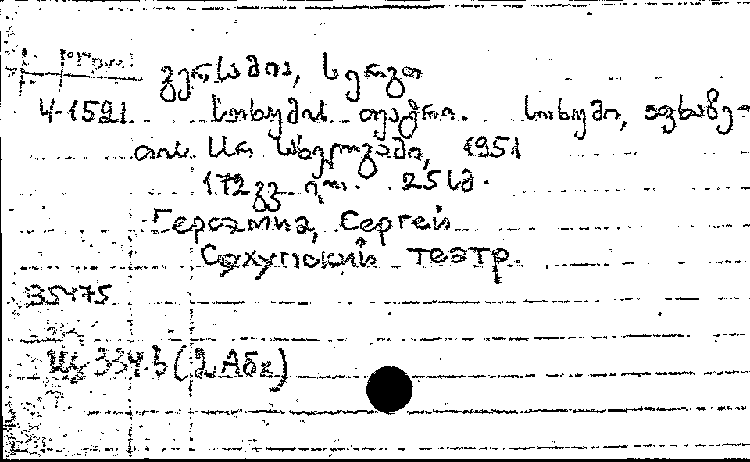 გერსამია, სერგო
4-1521 სოხუმის თეატრი. სოხუმი, აფხაზე-
თის სსრ სახელგამი, 1951
172 გვ. ილ. 25 სმ.
Герсамиа, Сергей
Сухумский театр.
35475
Щ 334.3 (2Абх)